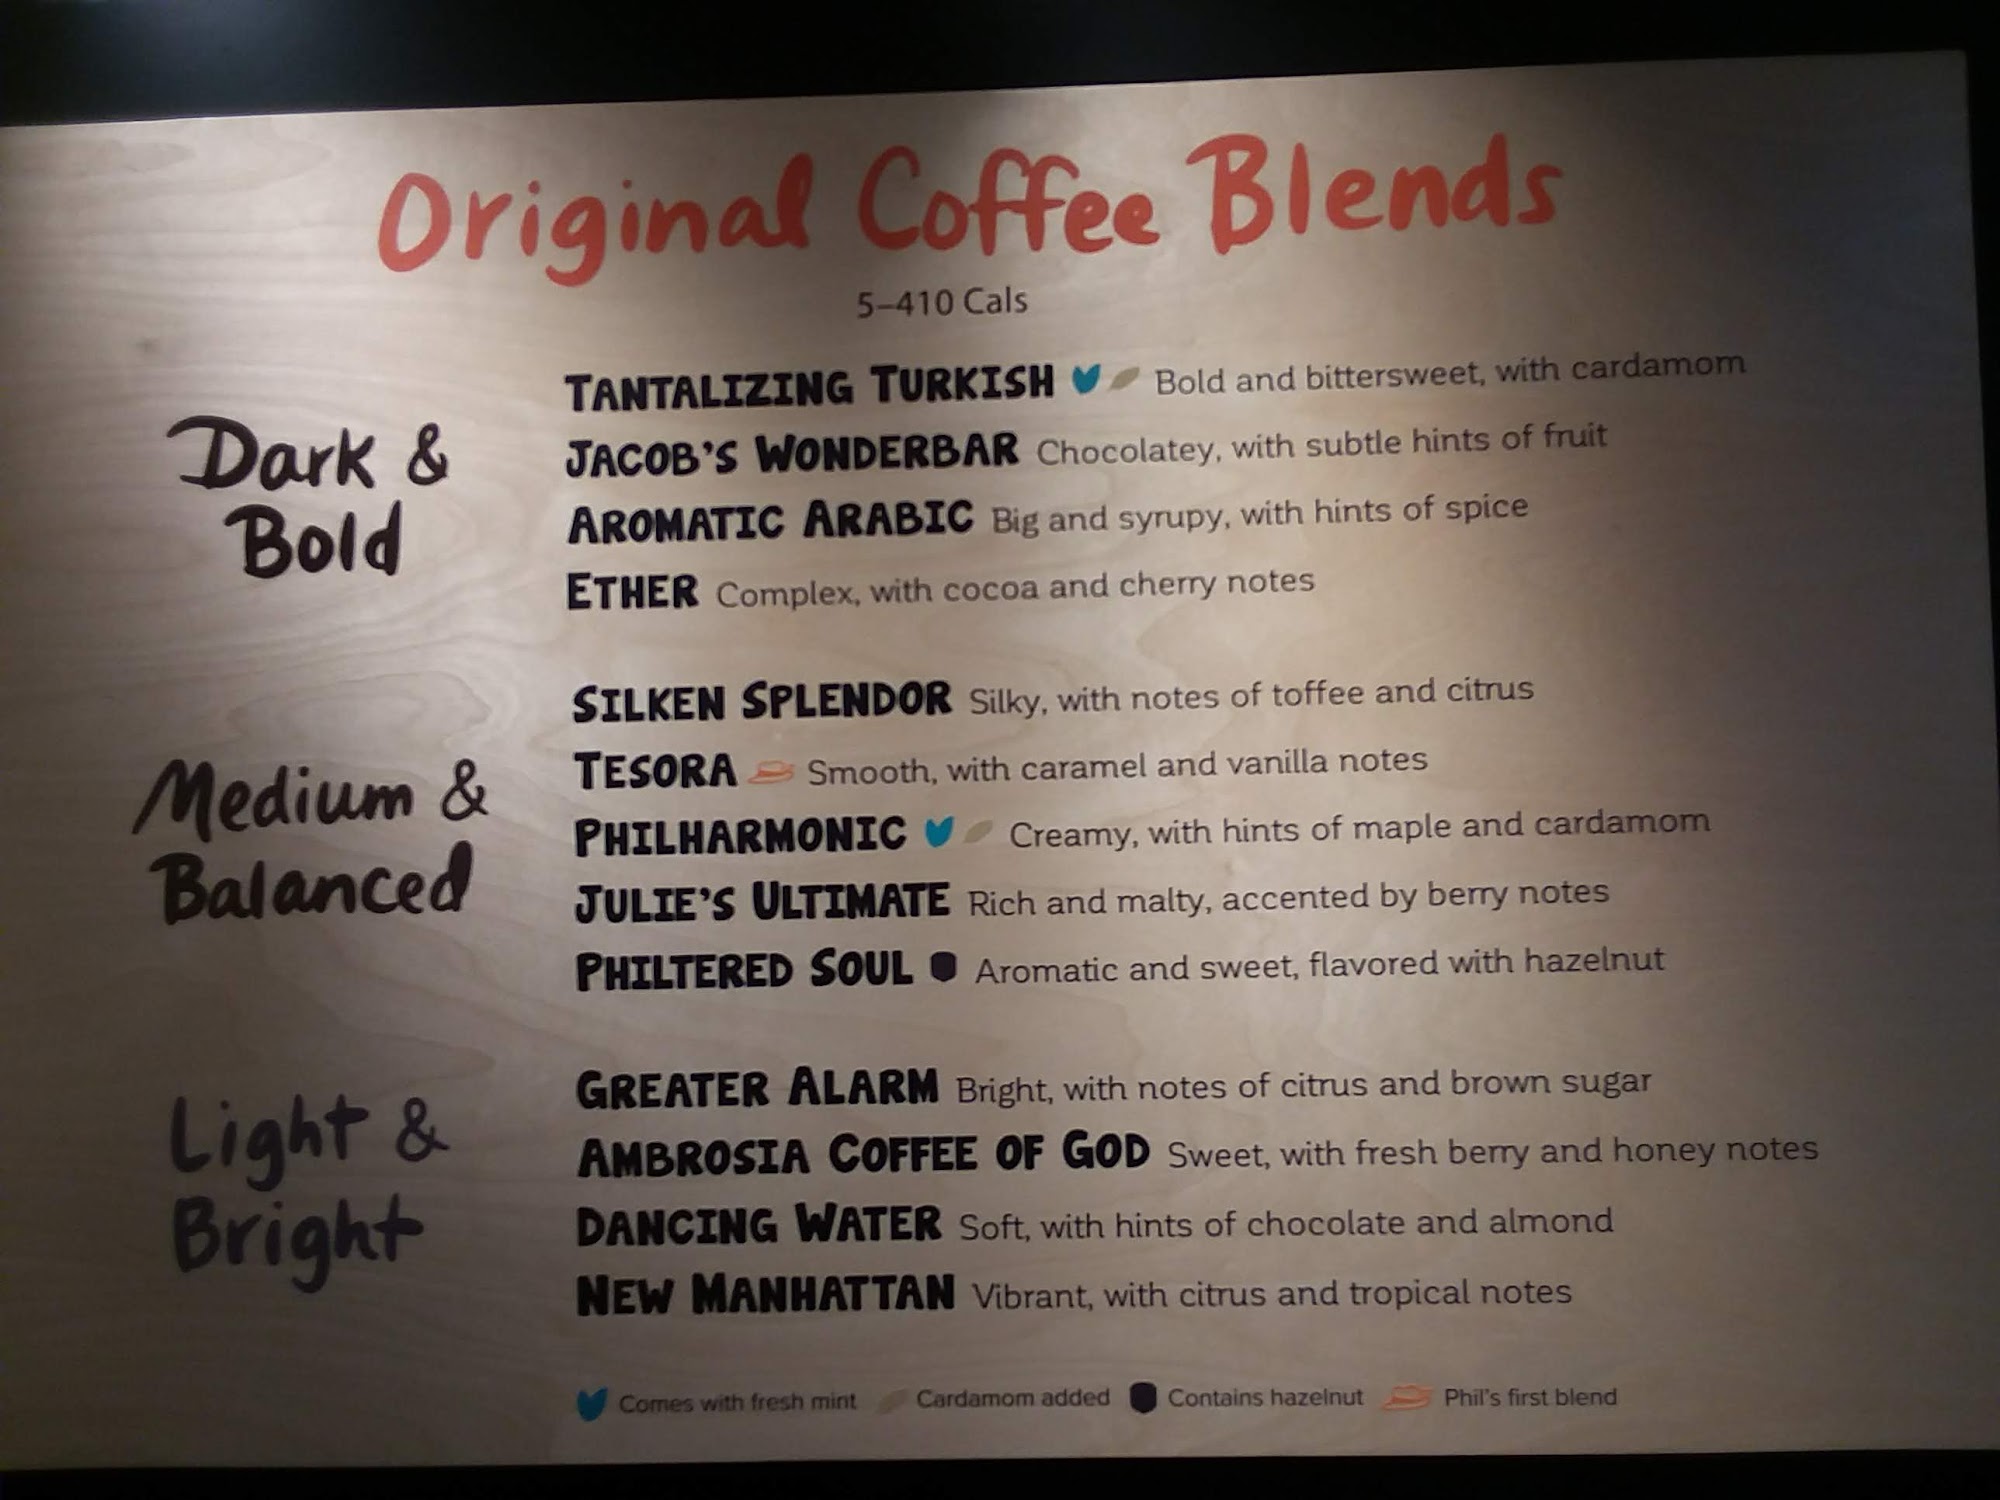 Original Coffee Blends
5–410 Cals
Dark &
Bold
TANTALIZING TURKISH Bold and bittersweet, with cardamom
JACOB'S WONDERBAR Chocolatey, with subtle hints of fruit
AROMATIC ARABIC Big and syrupy, with hints of spice
ETHER Complex, with cocoa and cherry notes
Medium &
Balanced
SILKEN SPLENDOR Silky, with notes of toffee and citrus
TESORA Smooth, with caramel and vanilla notes
PHILHARMONIC Creamy, with hints of maple and cardamom
JULIE'S ULTIMATE Rich and malty, accented by berry notes
PHILTERED SOUL Aromatic and sweet, flavored with hazelnut
Light &
Bright
GREATER ALARM Bright, with notes of citrus and brown sugar
AMBROSIA COFFEE OF GOD Sweet, with fresh berry and honey notes
DANCING WATER Soft, with hints of chocolate and almond
NEW MANHATTAN Vibrant, with citrus and tropical notes
Comes with fresh mint Cardamom added Contains hazelnut Phil's first blend